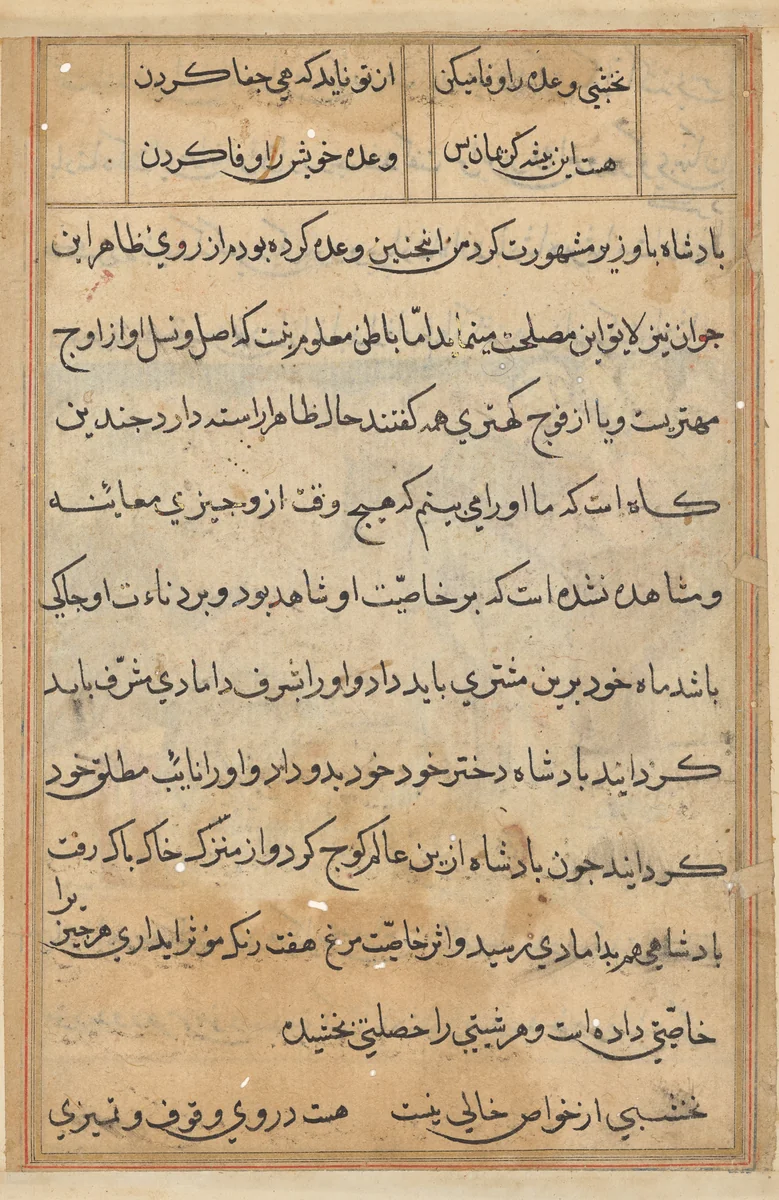 نخشبي وعده را وفا ميكن از تو نايد كه هي جفا كردن
هست اين بيشه كريمان بس وعده خويش را وفا كردن
بادشاه با وزير مشهورت كرد من انجنين وعده كرده بودم از روئ ظاهر اين
جوان نيز لايق اين مصلحت مينمايد امّا باطن معلوم نيست كه اصل و نسل او از اوج
مهتريست ويا از فوج كهتري همه كفتند حال ظاهر اراسته دارد جندين
كاه است كه ما او را مي بينم كه هيج وقت از و جيزي معائنه
و مشاهده نشده است كه بر خاصيّت او شاهد بود و بر دناءت او حاكي
باشد ماه خود برين مشتري بايد داد و او را بشرف دامادي مشرّف بايد
كردانيد بادشاه دختر خود خود بدو داد و او را نائب مطلق خود
كردانيد جون بادشاه ازين عالم كوج كرد و از منزل خاك باك رفت
بادشاهي هم بدامادي رسيد و اثر خاصيّت مرغ هفت رنك مؤثر ايد اري هر جيز يرا
خاصيّتي داده است و هر شيئي را خصلتي بخشيده
نخشبي از خواص خالي نيست هست در وي وقوف و تميزي